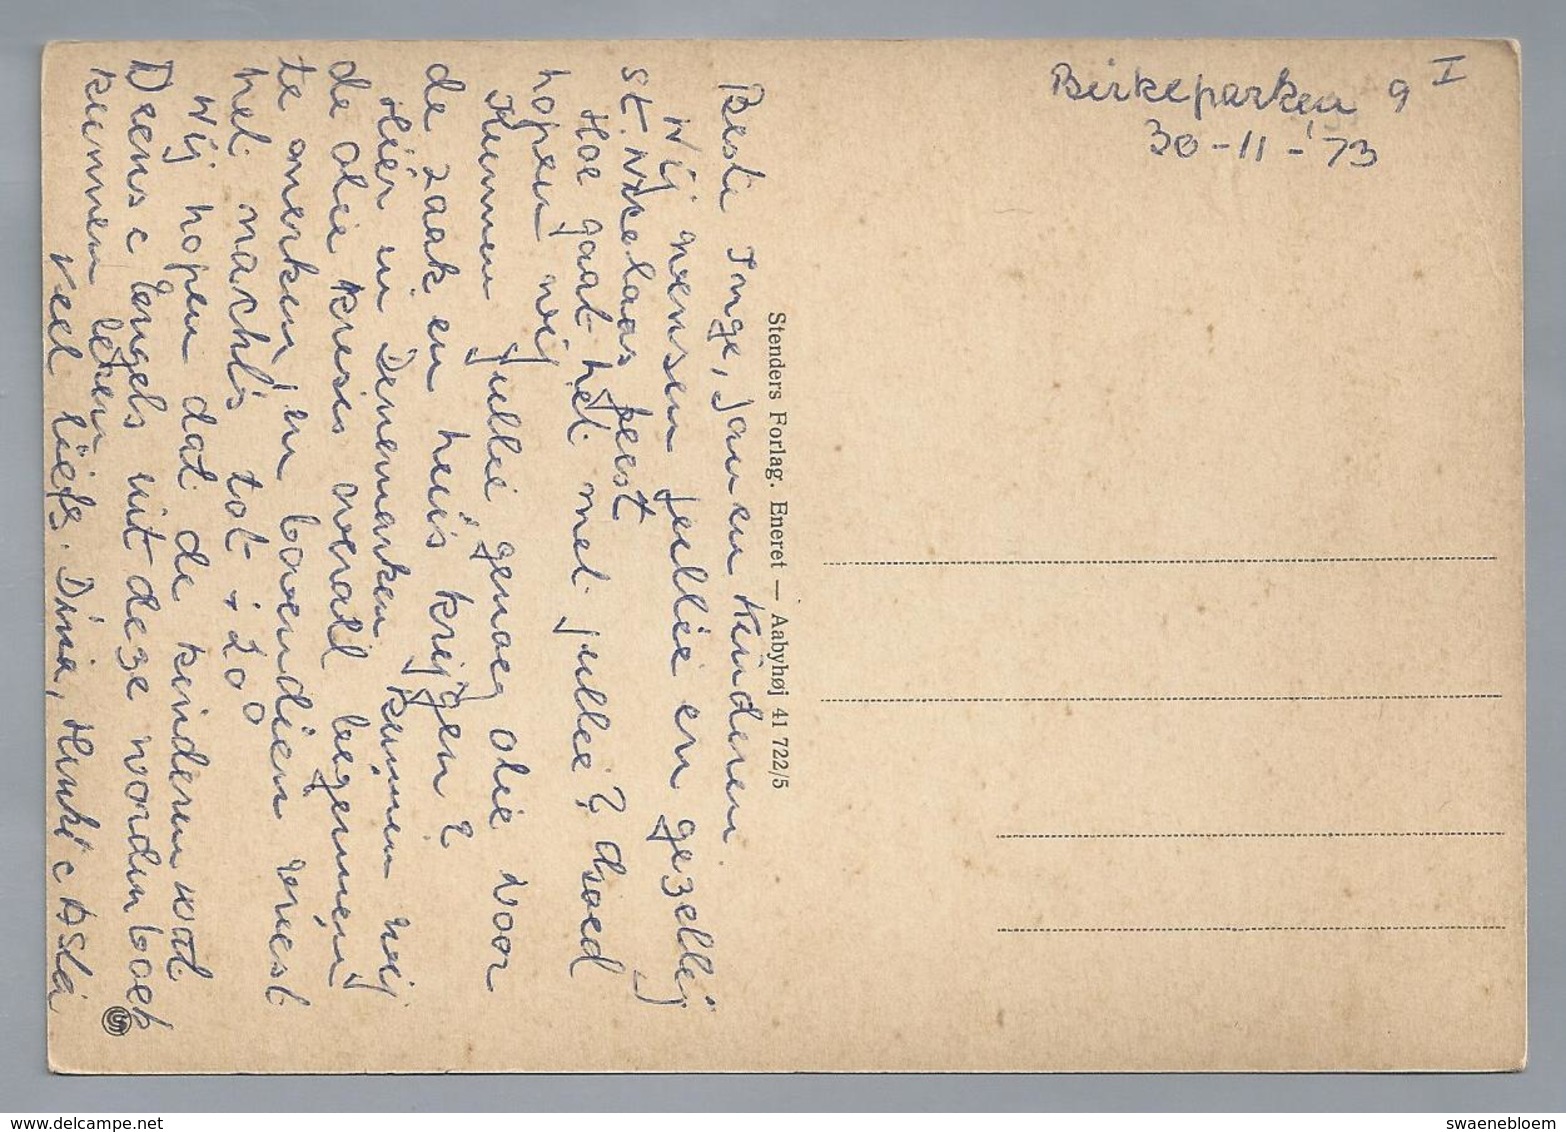 Birkeparken 9 I
30-11-'73
Beste Inge, Jan en Kinderen
Wij wensen jullie een gezellig
St. Nicolaas feest
Hoe gaat het met jullie? Goed
hopen wij
Kunnen jullie genoeg olie voor
de zaak en huis krijgen?
Hier in Denemarken kunnen wij
de olie krisis overal begennen
te merken, en bovendien vriest
het nachts tot ÷ 20°
Wij hopen dat de kinderen wat
Deens e Engels uit deze wordenboek
kunnen leken
Veel liefs. Dina, Henki e Asta
Stenders Forlag. Eneret — Aabyhøj 41 722/5
www.delcampe.net
swaenebloem